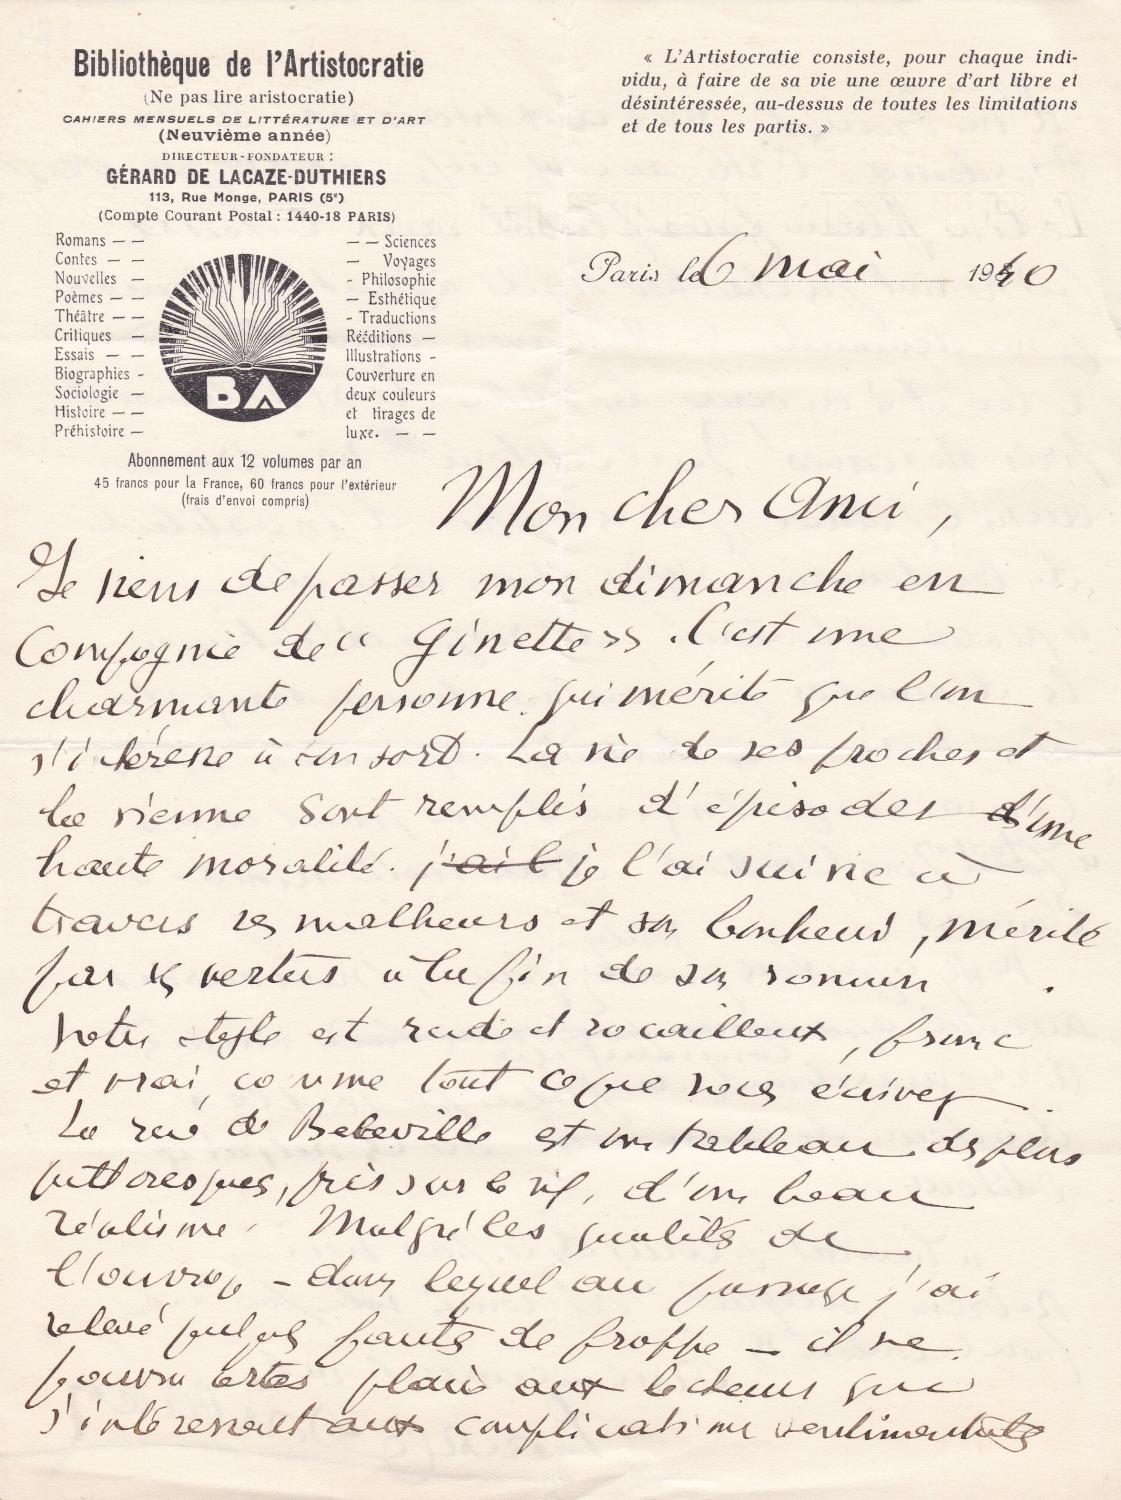 Bibliothèque de l'Artistocratie
(Ne pas lire aristocratie)
CAHIERS MENSUELS DE LITTÉRATURE ET D'ART
(Neuvième année)
DIRECTEUR-FONDATEUR :
GÉRARD DE LACAZE-DUTHIERS
113, Rue Monge, PARIS (5e)
(Compte Courant Postal : 1440-18 PARIS)
Romans — —
Contes — —
Nouvelles —
Poèmes — —
Théâtre — —
Critiques —
Essais — —
Biographies -
Sociologie —
Histoire — —
Préhistoire —
BA
— — Sciences
— Voyages
- Philosophie
— Esthétique
- Traductions
Rééditions —
Illustrations -
Couverture en
deux couleurs
et tirages de
luxe. — —
Abonnement aux 12 volumes par an
45 francs pour la France, 60 francs pour l'extérieur
(frais d'envoi compris)
« L'Artistocratie consiste, pour chaque indi-
vidu, à faire de sa vie une œuvre d'art libre et
désintéressée, au-dessus de toutes les limitations
et de tous les partis. »
Paris le 6 mai 1940
Mon cher Ami,
Je viens de passer mon dimanche en
compagnie de « Ginette ». C'est une
charmante personne qui mérite que l'on
s'intéresse à son sort. La vie de ses proches et
la sienne sont remplis d'épisodes d'une
haute moralité. j'ai l je l'ai suivie à
travers ses malheurs et son bonheur, mérité
par ses vertus à la fin de son roman.
Votre style est rude et rocailleux, franc
et vrai, comme tout ce que vous écrivez.
La rue de Belleville est un tableau des plus
pittoresques, pris sur le vif, d'un beau
réalisme. Malgré les qualités de
l'ouvrage – dans lequel au passage j'ai
relevé quelques fautes de frappe – il ne
pourra certes plaire aux lecteurs qui
s'intéressent aux complications sentimentales